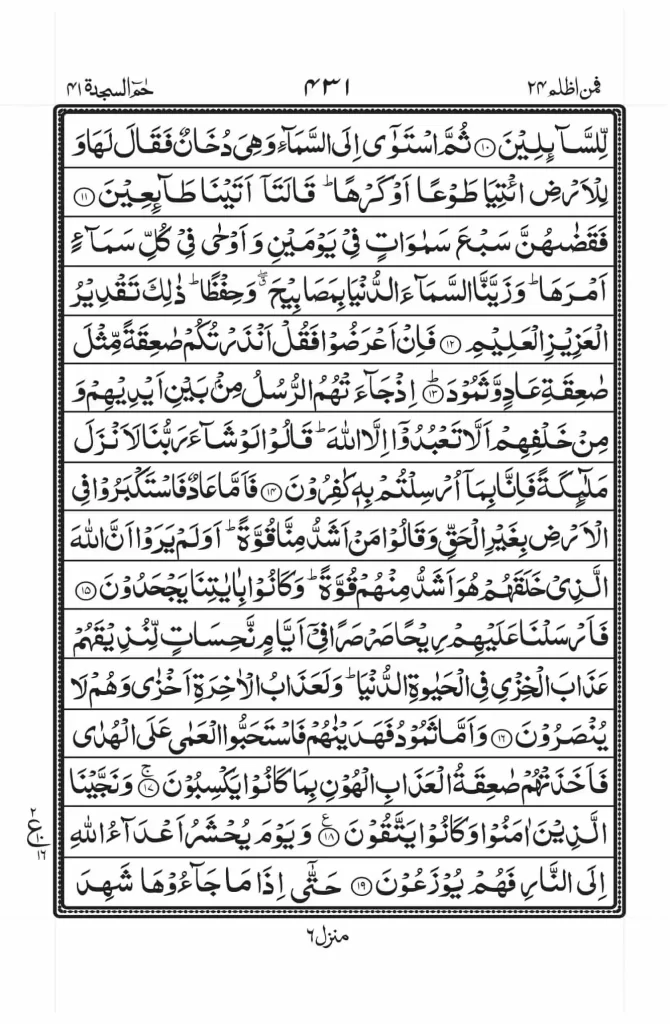 فمن اظلم ۲۴ ۴۳۱ حٰمٓ السجدة ۴۱
لِّلسَّآئِلِيْنَ ۝۱۰ ثُمَّ اسْتَوٰۤى اِلَى السَّمَآءِ وَهِىَ دُخَانٌ فَقَالَ لَهَا وَ
لِلْاَرْضِ ائْتِيَا طَوْعًا اَوْ كَرْهًا ؕ قَالَتَاۤ اَتَيْنَا طَآئِعِيْنَ ۝۱۱
فَقَضٰىهُنَّ سَبْعَ سَمٰوَاتٍ فِىْ يَوْمَيْنِ وَ اَوْحٰى فِىْ كُلِّ سَمَآءٍ
اَمْرَهَا ؕ وَزَيَّنَّا السَّمَآءَ الدُّنْيَا بِمَصَابِيْحَ ۖ وَحِفْظًا ؕ ذٰلِكَ تَقْدِيْرُ
الْعَزِيْزِ الْعَلِيْمِ ۝۱۲ فَاِنْ اَعْرَضُوْا فَقُلْ اَنْذَرْتُكُمْ صٰعِقَةً مِّثْلَ
صٰعِقَةِ عَادٍ وَّثَمُوْدَ ؕ۝۱۳ اِذْ جَآءَتْهُمُ الرُّسُلُ مِنْۢ بَيْنِ اَيْدِيْهِمْ وَ
مِنْ خَلْفِهِمْ اَلَّا تَعْبُدُوْۤا اِلَّا اللّٰهَ ؕ قَالُوْا لَوْ شَآءَ رَبُّنَا لَاَنْزَلَ
مَلٰٓئِكَةً فَاِنَّا بِمَاۤ اُرْسِلْتُمْ بِهٖ كٰفِرُوْنَ ۝۱۴ فَاَمَّا عَادٌ فَاسْتَكْبَرُوْا فِى
الْاَرْضِ بِغَيْرِ الْحَقِّ وَقَالُوْا مَنْ اَشَدُّ مِنَّا قُوَّةً ؕ اَوَلَمْ يَرَوْا اَنَّ اللّٰهَ
الَّذِىْ خَلَقَهُمْ هُوَ اَشَدُّ مِنْهُمْ قُوَّةً ؕ وَكَانُوْا بِاٰيٰتِنَا يَجْحَدُوْنَ ۝۱۵
فَاَرْسَلْنَا عَلَيْهِمْ رِيْحًا صَرْصَرًا فِىْۤ اَيَّامٍ نَّحِسَاتٍ لِّنُذِيْقَهُمْ
عَذَابَ الْخِزْىِ فِى الْحَيٰوةِ الدُّنْيَا ؕ وَلَعَذَابُ الْاٰخِرَةِ اَخْزٰى وَهُمْ لَا
يُنْصَرُوْنَ ۝۱۶ وَاَمَّا ثَمُوْدُ فَهَدَيْنٰهُمْ فَاسْتَحَبُّوا الْعَمٰى عَلَى الْهُدٰى
فَاَخَذَتْهُمْ صٰعِقَةُ الْعَذَابِ الْهُوْنِ بِمَا كَانُوْا يَكْسِبُوْنَ ۚ۝۱۷ وَنَجَّيْنَا
الَّذِيْنَ اٰمَنُوْا وَكَانُوْا يَتَّقُوْنَ ۝۱۸ع وَيَوْمَ يُحْشَرُ اَعْدَآءُ اللّٰهِ
۲ ع ۱۰ ۱۶
اِلَى النَّارِ فَهُمْ يُوْزَعُوْنَ ۝۱۹ حَتّٰٓى اِذَا مَا جَآءُوْهَا شَهِدَ
منزل ۶